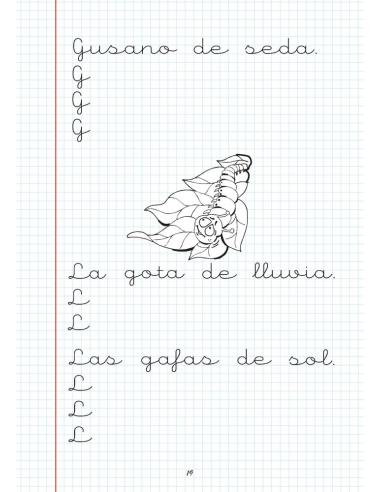 Gusano de seda.
G
G
G
La gota de lluvia.
L
L
Las gafas de sol.
L
L
L